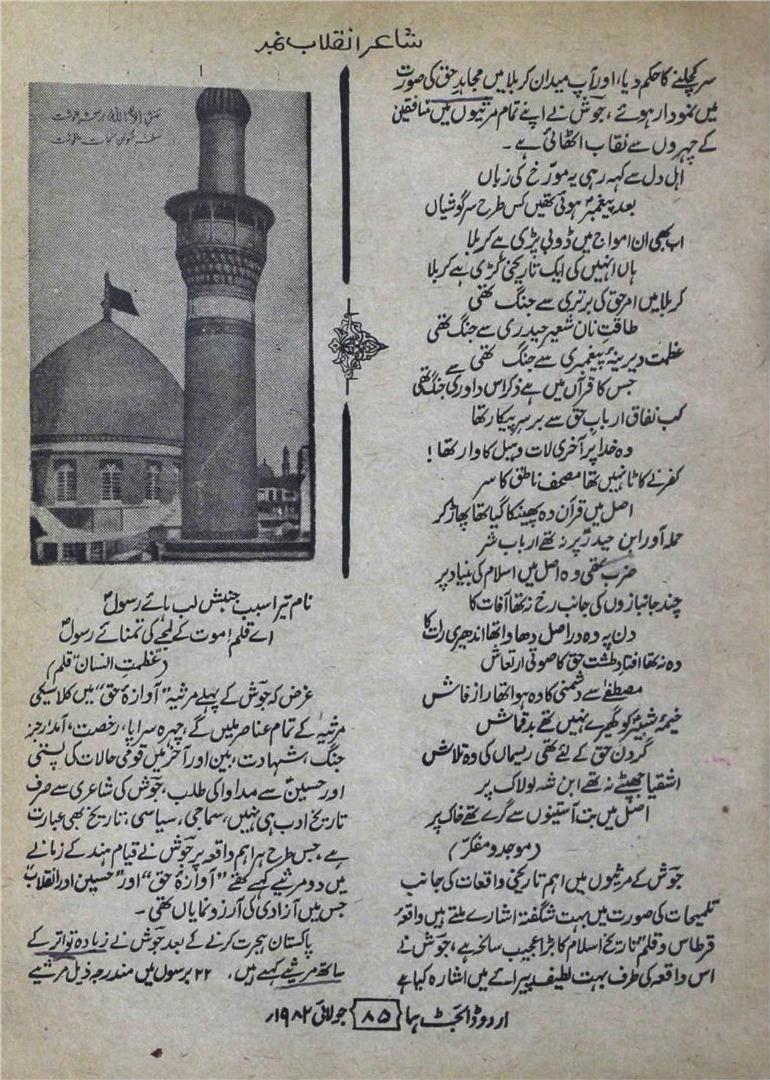 شاعر انقلاب نمبر
سر کچلنے کا حکم دیا، اور آپ میدان کربلا میں مجاہدِ حق کی صورت
میں نمودار ہوئے، جوش نے اپنے تمام مرثیوں میں منافقین
کے چہروں سے نقاب اٹھائی ہے۔
اہل دل سے کہہ رہی یہ مورّخ کی زباں
بعد پیغمبرؐ ہوئی تھیں کس طرح سرگوشیاں
اب بھی ان امواج میں ڈوبی پڑی ہے کربلا
ہاں انہیں کی ایک تاریخی کڑی ہے کربلا
کربلا میں امرِ حق کی برتری سے جنگ تھی
طاقتِ نان شعیرِ حیدری سے جنگ تھی
عظمت دیرینۂ پیغمبری سے جنگ تھی
جس کا قرآں میں ہے ذکر اس داوری سے جنگ تھی
کب نفاق اربابِ حق سے برسرِ پیکار تھا
وہ خدا پر آخری لات و ہبل کا وار تھا!
کفر نے کاٹا نہیں تھا مصحف ناطق کا سر
اصل میں قرآن وہ پھینکا گیا تھا پھاڑ کر
حملہ آور ابن حیدرؑ پر نہ تھے ارباب شر
ضرب تھی وہ اصل میں اسلام کی بنیاد پر
چند جانبازوں کی جانب رخ نہ تھا آفات کا
دن پہ وہ دراصل دھاوا تھا اندھیری رات کا
وہ نہ تھا افتادِ طشت حق کا صوتی ارتعاش
مصطفےٰؐ سے دشمنی کا وہ ہوا تھا راز فاش
خیمۂ شبیرؑ کو گھیرے نہیں تھے بدقماش
گردن حق کے لئے تھی ریسماں کی وہ تلاش
اشقیا جھپٹے نہ تھے ابن شہ لولاک پر
اصل میں بت آستینوں سے گرے تھے خاک پر
(موجد و مفکر)
جوش کے مرثیوں میں اہم تاریخی واقعات کی جانب
تلمیحات کی صورت میں بہت شگفتہ اشارے ملتے ہیں واقعۂ
قرطاس و قلم "تاریخ اسلام کا بڑا عجیب سانحہ ہے، جوش نے
اس واقعہ کی طرف بہت لطیف پیرائے میں اشارہ کیا ہے
نام تیرا سبب جنبش لب ہائے رسولؐ
اے قلم! موت کے لمحے کی تمنائے رسولؐ
(عظمتِ انسان "قلم)
غرض کہ جوش کے پہلے مرثیہ "آوازۂ حق" میں کلاسیکی
مرثیہ کے تمام عناصر ملیں گے، چہرہ سراپا، رخصت، آمد، رجز
جنگ، شہادت، بین اور آخر میں قومی حالات کی پستی
اور حسینؑ سے مداوا کی طلب، جوش کی شاعری سے صرف
تاریخ ادب ہی نہیں، سماجی، سیاسی: تاریخ بھی عبارت
ہے، جس طرح ہر اہم واقعہ پر جوش نے قیام ہند کے زمانے
میں دو مرثیے کہے تھے "آوازۂ حق" اور "حسین اور انقلاب"
جس میں آزادی کی آرزو نمایاں تھی۔
پاکستان ہجرت کرنے کے بعد جوش نے زیادہ تواتر کے
ساتھ مرثیے کہے ہیں، ۲۲ برسوں میں مندرجہ ذیل مرثیے
اردو ڈائجسٹ ہما {۸۵} جولائی ۱۹۸۲ء